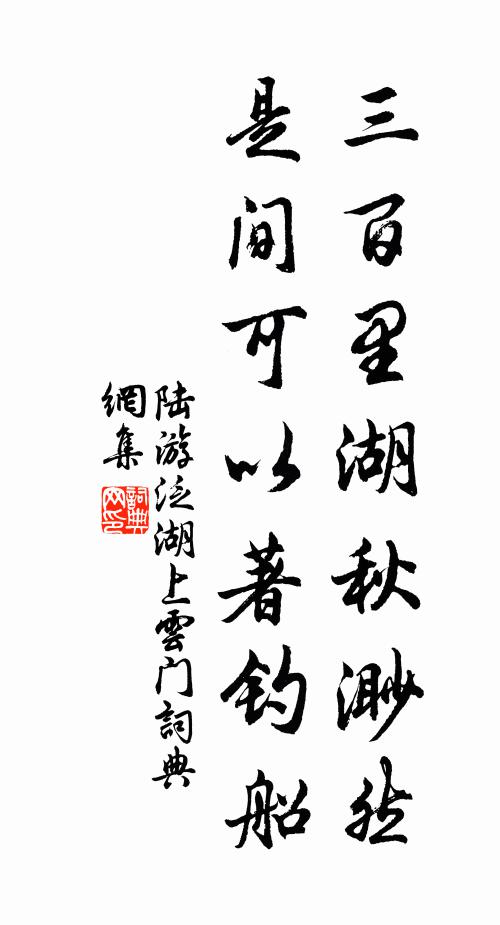 三百里湖秋渺然
是间可以著钓船
陆游泛湖上雲门詞典
網集
詞典
网印